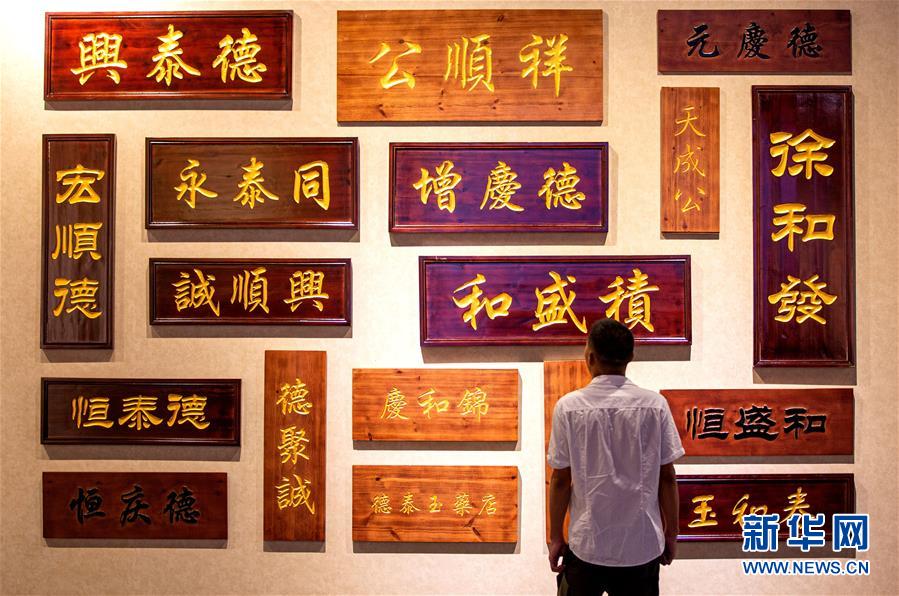 興泰德
公順祥
元慶德
宏順德
永泰同
增慶德
天成公
徐和發
誠順興
和盛積
恒泰德
德聚誠
慶和錦
恒盛和
恒庆德
德泰玉藥店
玉和
新华网
WWW.NEWS.CN